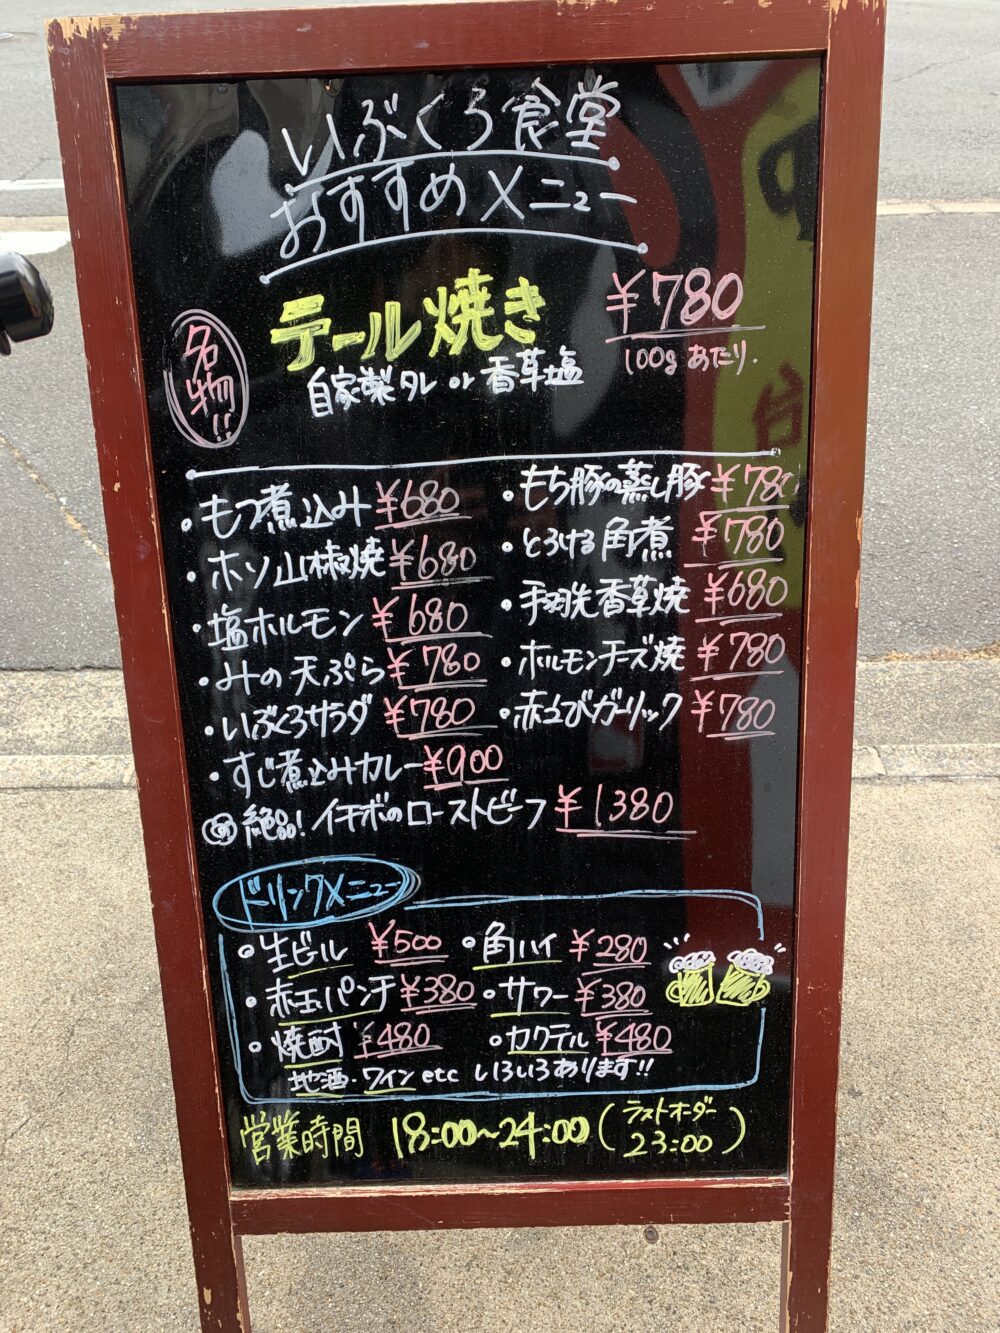 いぶくろ食堂
おすすめメニュー
名物!!
テール焼き ¥780
自家製タレ or 香草塩
100gあたり.
・もつ煮込み ¥680
・ホソ山椒焼 ¥680
・塩ホルモン ¥680
・みの天ぷら ¥780
・いぶくろサラダ ¥780
・すじ煮込みカレー ¥900
・もち豚の蒸し豚 ¥780
・とろける角煮 ¥780
・手羽先香草焼 ¥680
・ホルモンチーズ焼 ¥780
・赤えびガーリック ¥780
◎絶品!イチボのローストビーフ ¥1380
ドリンクメニュー
・生ビール ¥500 ・角ハイ ¥280
・赤玉パンチ ¥380 ・サワー ¥380
・焼酎 ¥480 ・カクテル ¥480
地酒・ワイン etc いろいろあります!!
営業時間 18:00〜24:00(ラストオーダー
23:00)